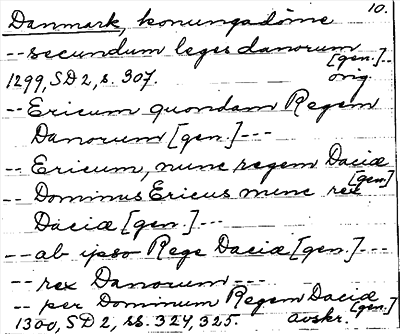 10.
Danmark, konungadöme
-- secundum leges danorum
[gen.]--
1299, SD 2, s. 307. orig
-- Ericum quondam Regem
Danorum [gen.] ---
-- Ericum, nunc regem Daciæ
[gen]
-- Dominus Ericus nunc rex
Daciæ [gen.] ---
-- ab ipso Rege Daciæ [gen.] ---
-- rex Danorum ---
-- per Dominum Regem Daciæ
[gen.]
1300, SD 2, ss. 324, 325. avskr.